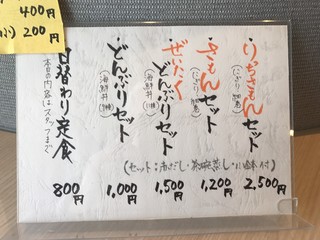 400円
小) 200円
りっちさもんセット
2,500円
さもんセット
1,200円
ぜいたく
どんぶりセット
(海鮮丼)
1,500円
どんぶりセット
(海鮮丼)
1,000円
日替わり定食
本日の内容はスタッフまで
800円
(セット:赤だし・茶碗蒸し・小鉢付)